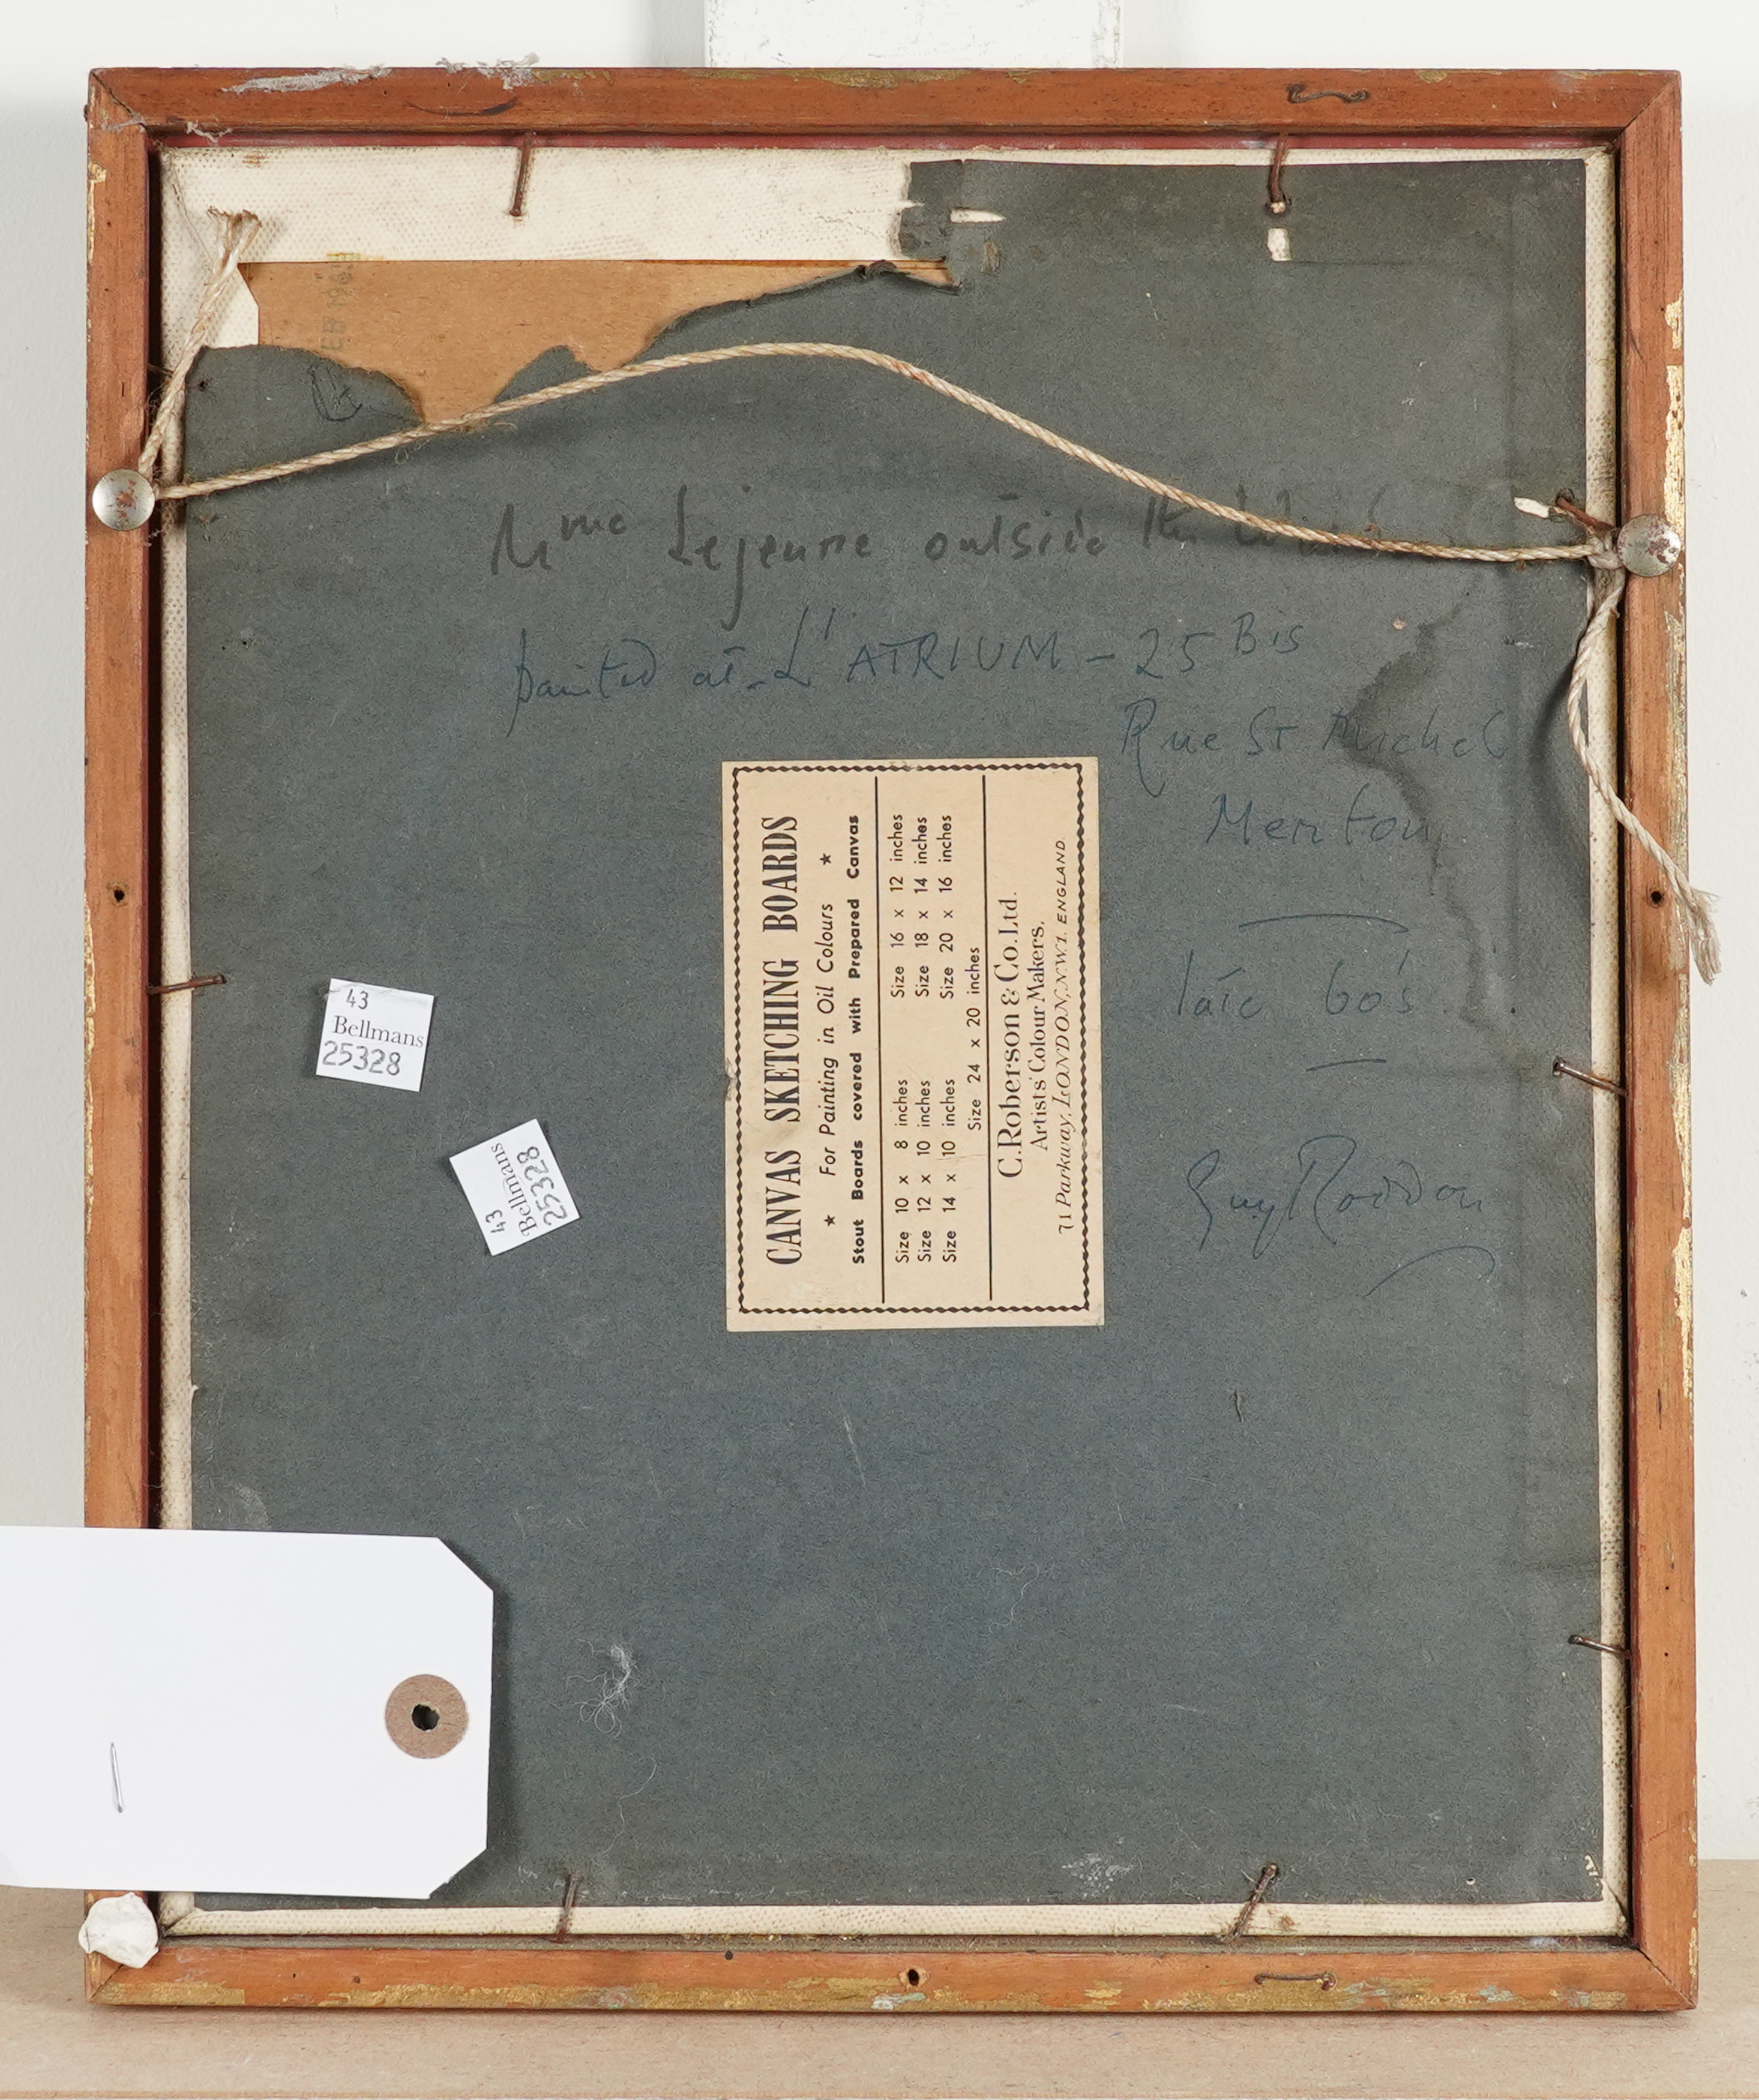 Mme Lejeune outside the
painted at L'ATRIUM – 25 Bis
Rue St Michel
Menton
late 60's
Guy Roddon
CANVAS SKETCHING BOARDS
★ For Painting in Oil Colours ★
Stout Boards covered with Prepared Canvas
Size 10 x 8 inches Size 16 x 12 inches
Size 12 x 10 inches Size 18 x 14 inches
Size 14 x 10 inches Size 20 x 16 inches
Size 24 x 20 inches
C. Roberson & Co. Ltd.
Artists' Colour Makers,
71 Parkway, LONDON, N.W.1. ENGLAND.
43
Bellmans
25328
43
Bellmans
25328